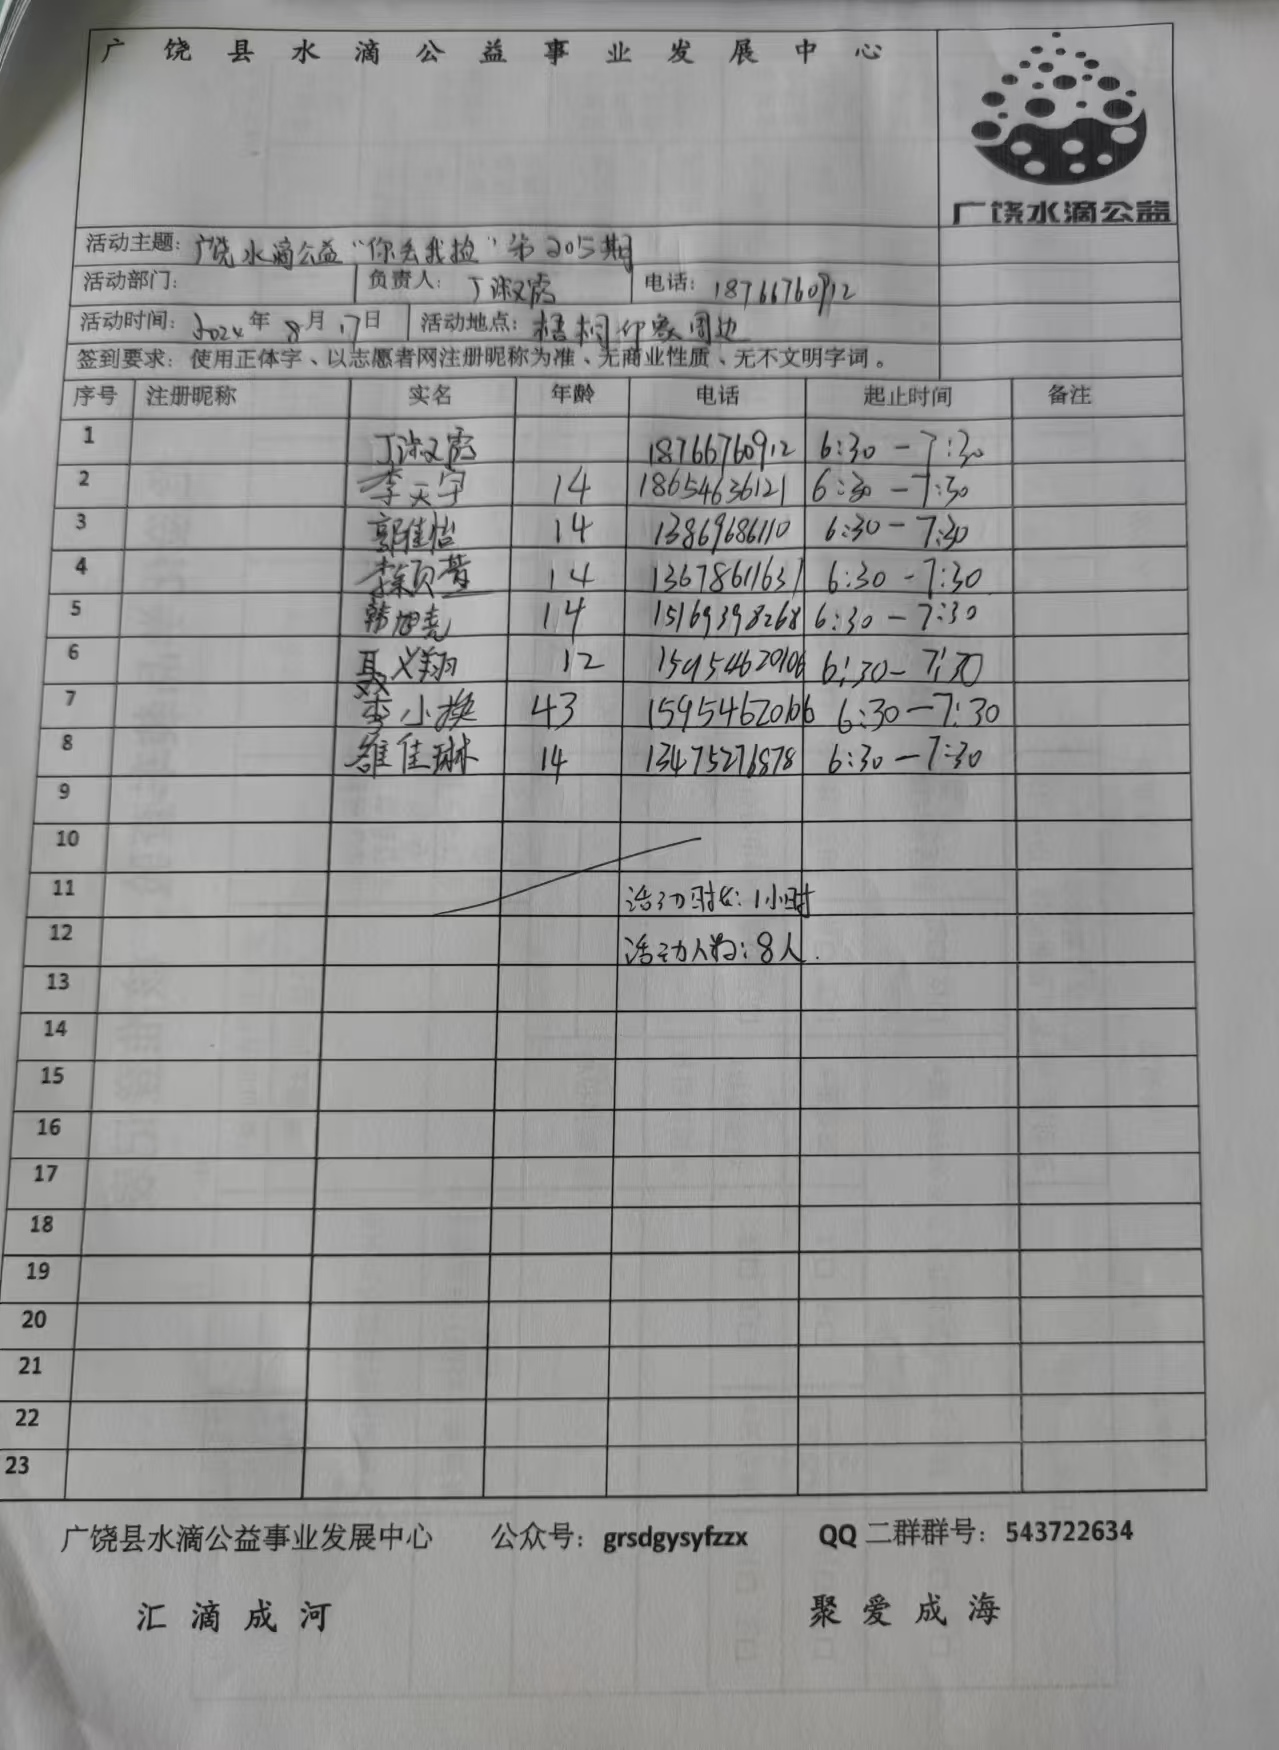 广饶县水滴公益事业发展中心
广饶水滴公益
活动主题：广饶水滴公益“你丢我捡”第205期
活动部门： 负责人：丁淑霞 电话：18766760912
活动时间：2024年8月17日 活动地点：梧桐印象周边
签到要求：使用正体字、以志愿者网注册昵称为准、无商业性质、无不文明字词。
序号 注册昵称 实名 年龄 电话 起止时间 备注
1 丁淑霞 18766760912 6:30-7:30
2 李天宇 14 18654636121 6:30-7:30
3 郭佳怡 14 13869686110 6:30-7:30
4 14 13678611631 6:30-7:30
5 韩旭尧 14 15169398268 6:30-7:30
6 聂义翔 12 15954620106 6:30-7:30
7 李小换 43 15954620106 6:30-7:30
8 雒佳琳 14 13475276878 6:30-7:30
9
10
11 活动时长：1小时
12 活动人数：8人.
13
14
15
16
17
18
19
20
21
22
23
广饶县水滴公益事业发展中心 公众号：grsdgysyfzzx QQ二群群号：543722634
汇滴成河 聚爱成海